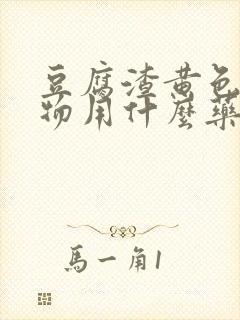 豆腐渣黄色
物用什麼藥
馬一角1